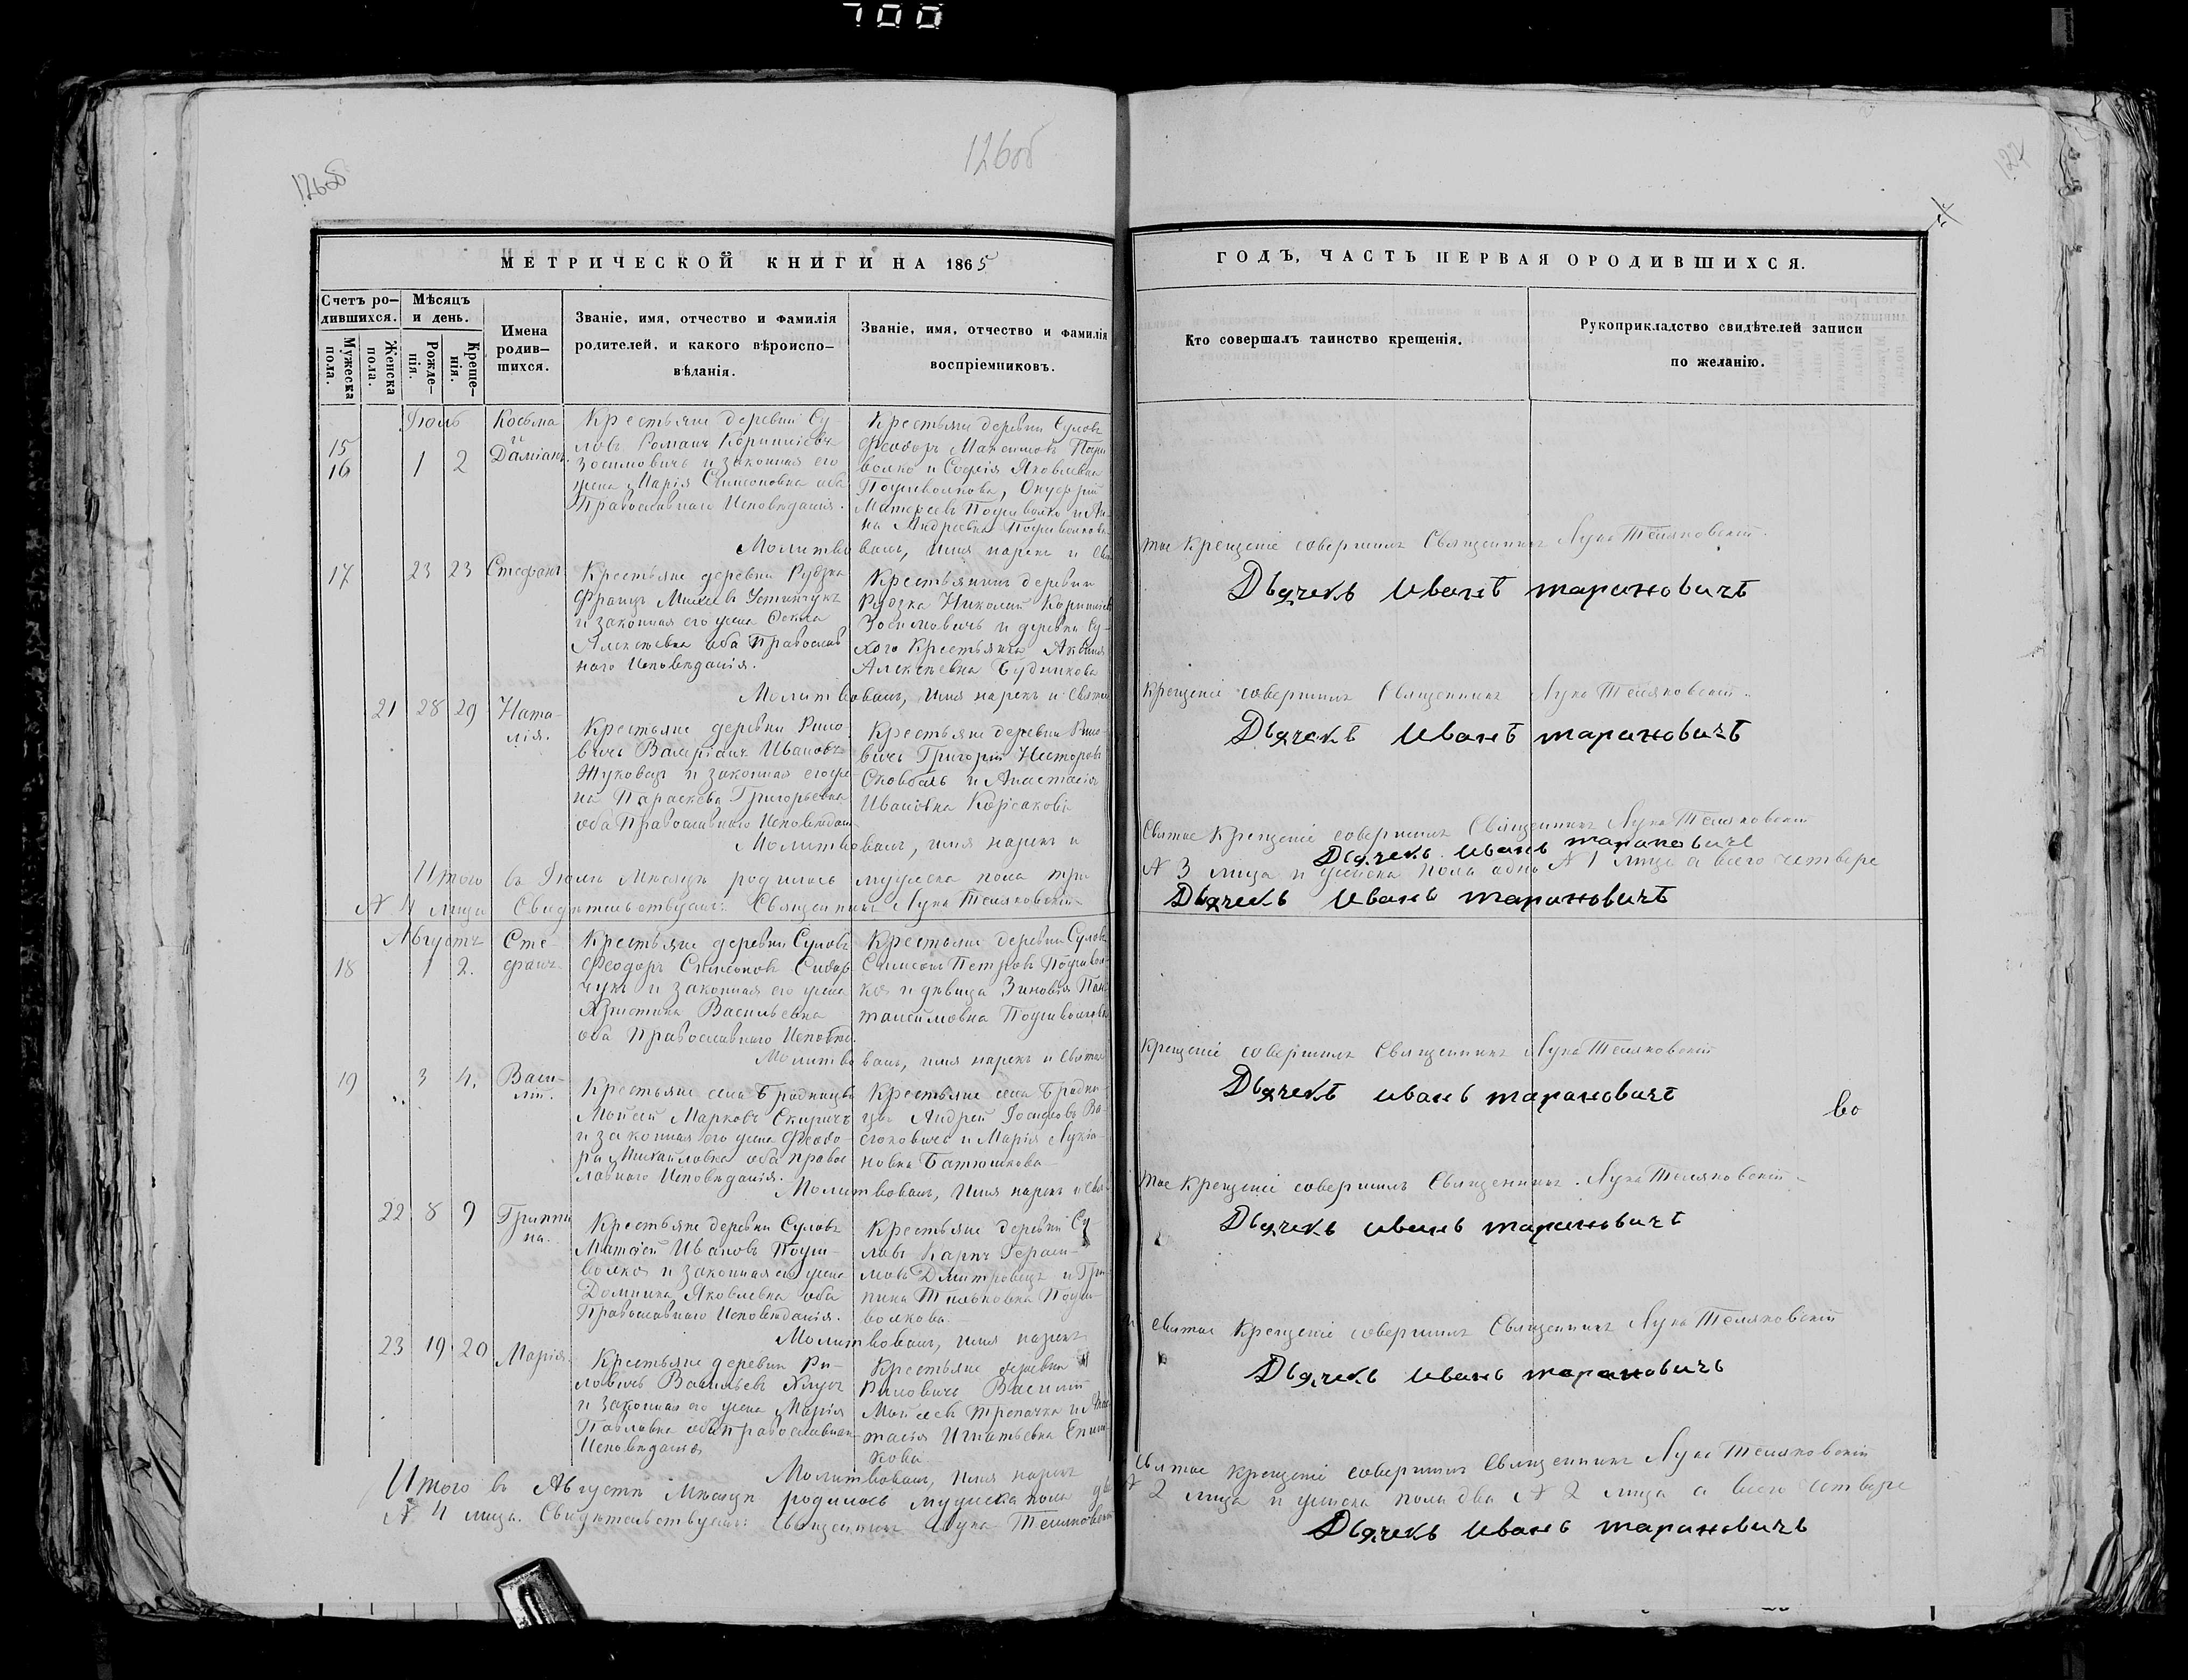 700
126об
126об
127
МЕТРИЧЕСКОЙ КНИГИ НА 1865
ГОДЪ, ЧАСТЬ ПЕРВАЯ О РОДИВШИХСЯ.
Счетъ ро-
дившихся.
Мѣсяцъ
и день.
Мужеска
пола.
Женска
пола.
Рожде-
нія.
Креще-
нія.
Имена
родив-
шихся.
Званіе, имя, отчество и фамилія
родителей, и какого вѣроиспо-
вѣданія.
Званіе, имя, отчество и фамилія
воспріемниковъ.
Кто совершалъ таинство крещенія.
Рукоприкладство свидѣтелей записи
по желанію.
Іюль
15
16
1 2
Косьма
и
Даміанъ.
Крестьяне деревни Су
ловъ Романъ Корниліевъ
Зосимовичъ и законная его
жена Марія Симеоновна оба
Православнаго Исповѣданія.
Крестьяне деревни Суловъ
Феодоръ Максимовъ
и Софія Яковлевна
Онуфрій
Матѳеевъ и Ан-
на Андреевна
Молитвовалъ, имя нарекъ и Свя
тое Крещеніе совершилъ Священникъ Лука Теляковскій.
Дьячекъ Иванъ тарановичъ
17 23 23 Стефанъ
Крестьяне деревни Рудзка
Францъ Устимчукъ
и законная его жена
Алексѣевна оба Православ
наго Исповѣданія.
Крестьянинъ деревни
Рудзка Николай Корниліевъ
Зосимовичъ и деревни Су-
хого Крестьянка
Алексѣевна Будникова
Молитвовалъ, имя нарекъ и Святое
Крещеніе совершилъ Священникъ Лука Теляковскій.
Дьячекъ Иванъ тарановичъ
21 28 29 Ната-
лія.
Крестьяне деревни Рило
вичъ Валеріанъ Ивановъ
Жуковецъ и законная его же
на Параскева Григорьевна
оба Православнаго Исповѣдан.
Крестьяне деревни Рило-
вичъ Григорій Несторовъ
и Анастасія
Ивановна Корсакова
Молитвовалъ, имя нарекъ и
Святое Крещеніе совершилъ Священникъ Лука Теляковскій
Дьячекъ Иванъ тарановичъ
Итого въ Іюлѣ Мѣсяцѣ родилось мужеска пола три
№ 3 лица и женска пола одно № 1 лице а всего четвере
№ 4 лица Свидѣтельствуемъ: Священникъ Лука Теляковскій
Дьячекъ Иванъ тарановичъ
Августъ
18 1 2.
Сте-
фанъ.
Крестьяне деревни Суловъ
Феодоръ Симеоновъ Сидор
чукъ и законная его жена
Христина Васильевна
оба Православнаго Исповѣд.
Крестьяне деревни Суловъ
Симеонъ Петровъ
и дѣвица Зиновія Пан
телеймовна
Молитвовалъ, имя нарекъ и Святое
Крещеніе совершилъ Священникъ Лука Теляковскій
Дьячекъ Иванъ тарановичъ
во
19 3 4.
Васи-
лій.
Крестьяне села Бродницы
Мойсей Марковъ Скиричъ
и законная его жена Феодо-
ра Михайловна оба право
славнаго Исповѣданія.
Крестьяне села Бродни-
цы Андрей Іосифовъ Ва-
сюковичъ и Марія Лукія-
новна Батюшкова
Молитвовалъ, Имя нарекъ и Свя
тое Крещеніе совершилъ Священникъ. Лука Теляковскій
Дьячекъ Иванъ тарановичъ
22 8 9
Гриппи
на.
Крестьяне деревни Суловъ
Матѳей Ивановъ
и законная его жена
Домника Яковлевна оба
Православнаго Исповѣданія.
Крестьяне деревни Су-
ловъ Карпъ Гераси-
мовъ Дмитровецъ и Гри-
пина
Молитвовалъ, имя нарекъ
и Святое Крещеніе совершилъ Священникъ Лука Теляковскій
Дьячекъ Иванъ тарановичъ
23 19 20 Марія.
Крестьяне деревни Ри-
ловичъ Васильевъ
и законная его жена Марія
Павловна оба православнаго
Исповѣданія
Крестьяне деревни
Риловичъ Василій
Мойсеевъ и Анас
тасія Игнатьевна
Молитвовалъ, имя нарекъ
Святое крещеніе совершилъ Священникъ Лука Теляковскій
Итого въ Августѣ Мѣсяцѣ родилось мужеска пола два
№ 2 лица и женска пола два № 2 лица а всего четвере
№ 4 лица. Свидѣтельствуемъ: Священникъ Лука Теляковскій
Дьячекъ Иванъ тарановичъ